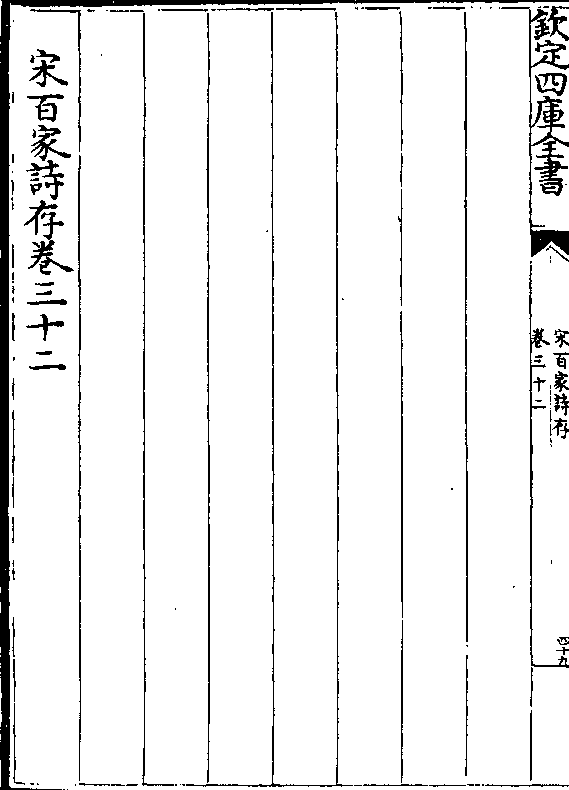 欽定四庫全書
宋百家詩存
卷三十二
四十九
宋百家詩存卷三十二